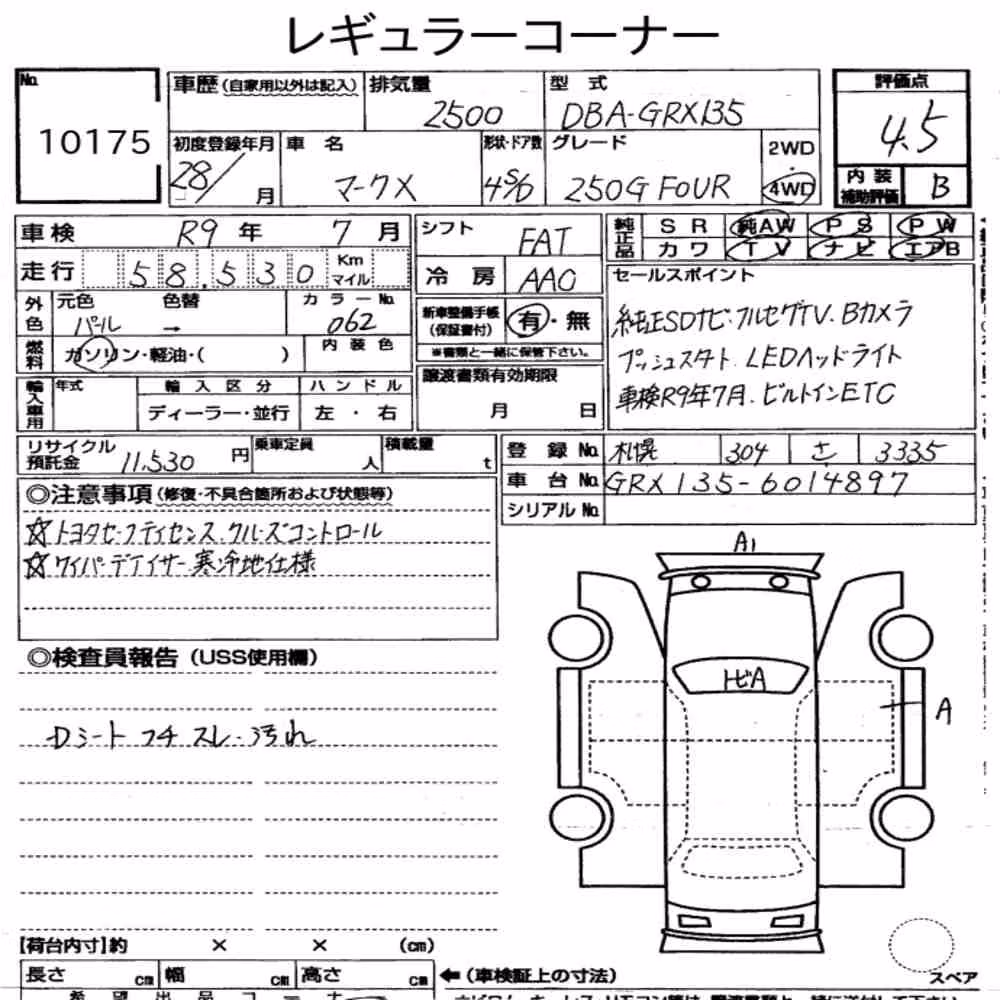 レギュラーコーナー
No.
10175
車歴(自家用以外は記入)
排気量
2500
型式
DBA-GRX135
評価点
4.5
初度登録年月
28/
月
車名
マークX
形状・ドア数
4S/D
グレード
250G FOUR
2WD
4WD
内装
補助評価
B
車検
R9年
7月
走行
58,530
Km
マイル
シフト
FAT
冷房
AAC
純正品
SR 純AW PS PW
カワ TV ナビ エアB
外色
元色
パール
色替
→
カラーNo.
062
燃料
ガソリン・軽油・( )
内装色
新車整備手帳
(保証書付)
有・無
※書類と一緒に保管下さい。
セールスポイント
純正SDナビ.フルセグTV.Bカメラ
プッシュスタト.LEDヘッドライト
車検R9年7月.ビルトインETC
輸入車用
年式
輸入区分
ディーラー・並行
ハンドル
左・右
譲渡書類有効期限
月 日
リサイクル
預託金
11.530 円
乗車定員
人
積載量
t
登録No.
札幌 304 さ 3335
車台No.
GRX135-6014897
シリアルNo.
◎注意事項(修復・不具合箇所および状態等)
☆トヨタセーフティセンス.クルーズコントロール
☆ワイパーデアイサー.寒冷地仕様
A1
トビA
A
◎検査員報告(USS使用欄)
Dシート フチ スレ・汚れ
【荷台内寸】約 × × (cm)
長さ cm 幅 cm 高さ cm
←(車検証上の寸法)
スペア
希望出品コーナー